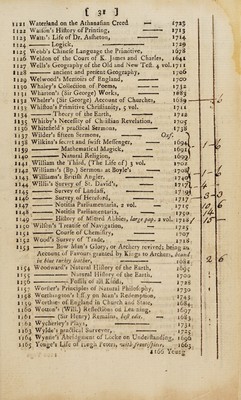 [ 32 ]
1121 Waterland on the Athanasian Creed — 1725
1122 Watson's History of Printing, 1713
1123 Watts's Life of Dr. Assheton, 1714
1124 — Logick, 1729
1125 Webb's Chinese Language the Primitive, 1678
1126 Weldon of the Court of K. James and Charles, 1642
1127 Wells's Geography of the Old and New Test. 4 vol. 1711
1128 — ancient and present Geography, 1706
1129 Welwood's Memoirs of England, 1700
1130 Whaley's Collection of Poems, 1732
1131 Wharton's (Sir George) Works, 1683
1132 Wheler's (Sir George) Account of Churches, 1689
1133 Whiston's Primitive Christianity, 5 vol. 1711
1134 — Theory of the Earth, 1722
1135 Whitby's Necessity of Christian Revelation, 1705
1136 Whitefield's practical Sermons, 1738
1137 Wilder's fifteen Sermons, Oxf.
1138 Wilkins's secret and swift Messenger,
1139 — Mathematical Magick, 1691
1140 — Natural Religion, 1693
1141 William the Third, (The Life of) 3 vol. 1702
1142 Williams's (Bp.) Sermons at Boyle's 1708
1143 Williams's British Angler, 1740
1144 Willis's Survey of St. David's, 1717
1145 — Survey of Landaff, 1719
1146 — Survey of Hereford, 1717
1147 — Notitia Parliamentaria, 2 vol. 1715
1148 — Notitia Parliamentaria, 1750
1149 — History of Mitred Abbies, large pap. 2 vol. 1718
1150 Wilson's Treatise of Navigation, 1725
1151 — Course of Chemistry, 1709
1152 Wood's Survey of Trade, 1718
1153 — Bow Man's Glory, or Archery revived; being an
Account of Favours granted by Kings to Archers, bound
in blue turkey leather, 1682
1154 Woodward's Natural History of the Earth, 1695
1155 — Natural History of the Earth, 1702
1156 — Fossils of all Kinds, 1728
1157 Worster's Principles of Natural Philosophy, 1730
1158 Worthington's Essay on Man's Redemption, 1743
1159 Worthies of England in Church and State, 1684
1160 Wotton's (Will.) Reflections on Learning, 1697
1161 — (Sir Henry) Remains, best edit. 1685
1162 Wycherley's Plays, 1731
1163 Wylde's practical Surveyor, 1725
1164 Wynne's Abridgment of Locke on Understanding, 1690
1165 Yonge's Life of Hugh Peters, with frontispiece, 1663
1166 Young